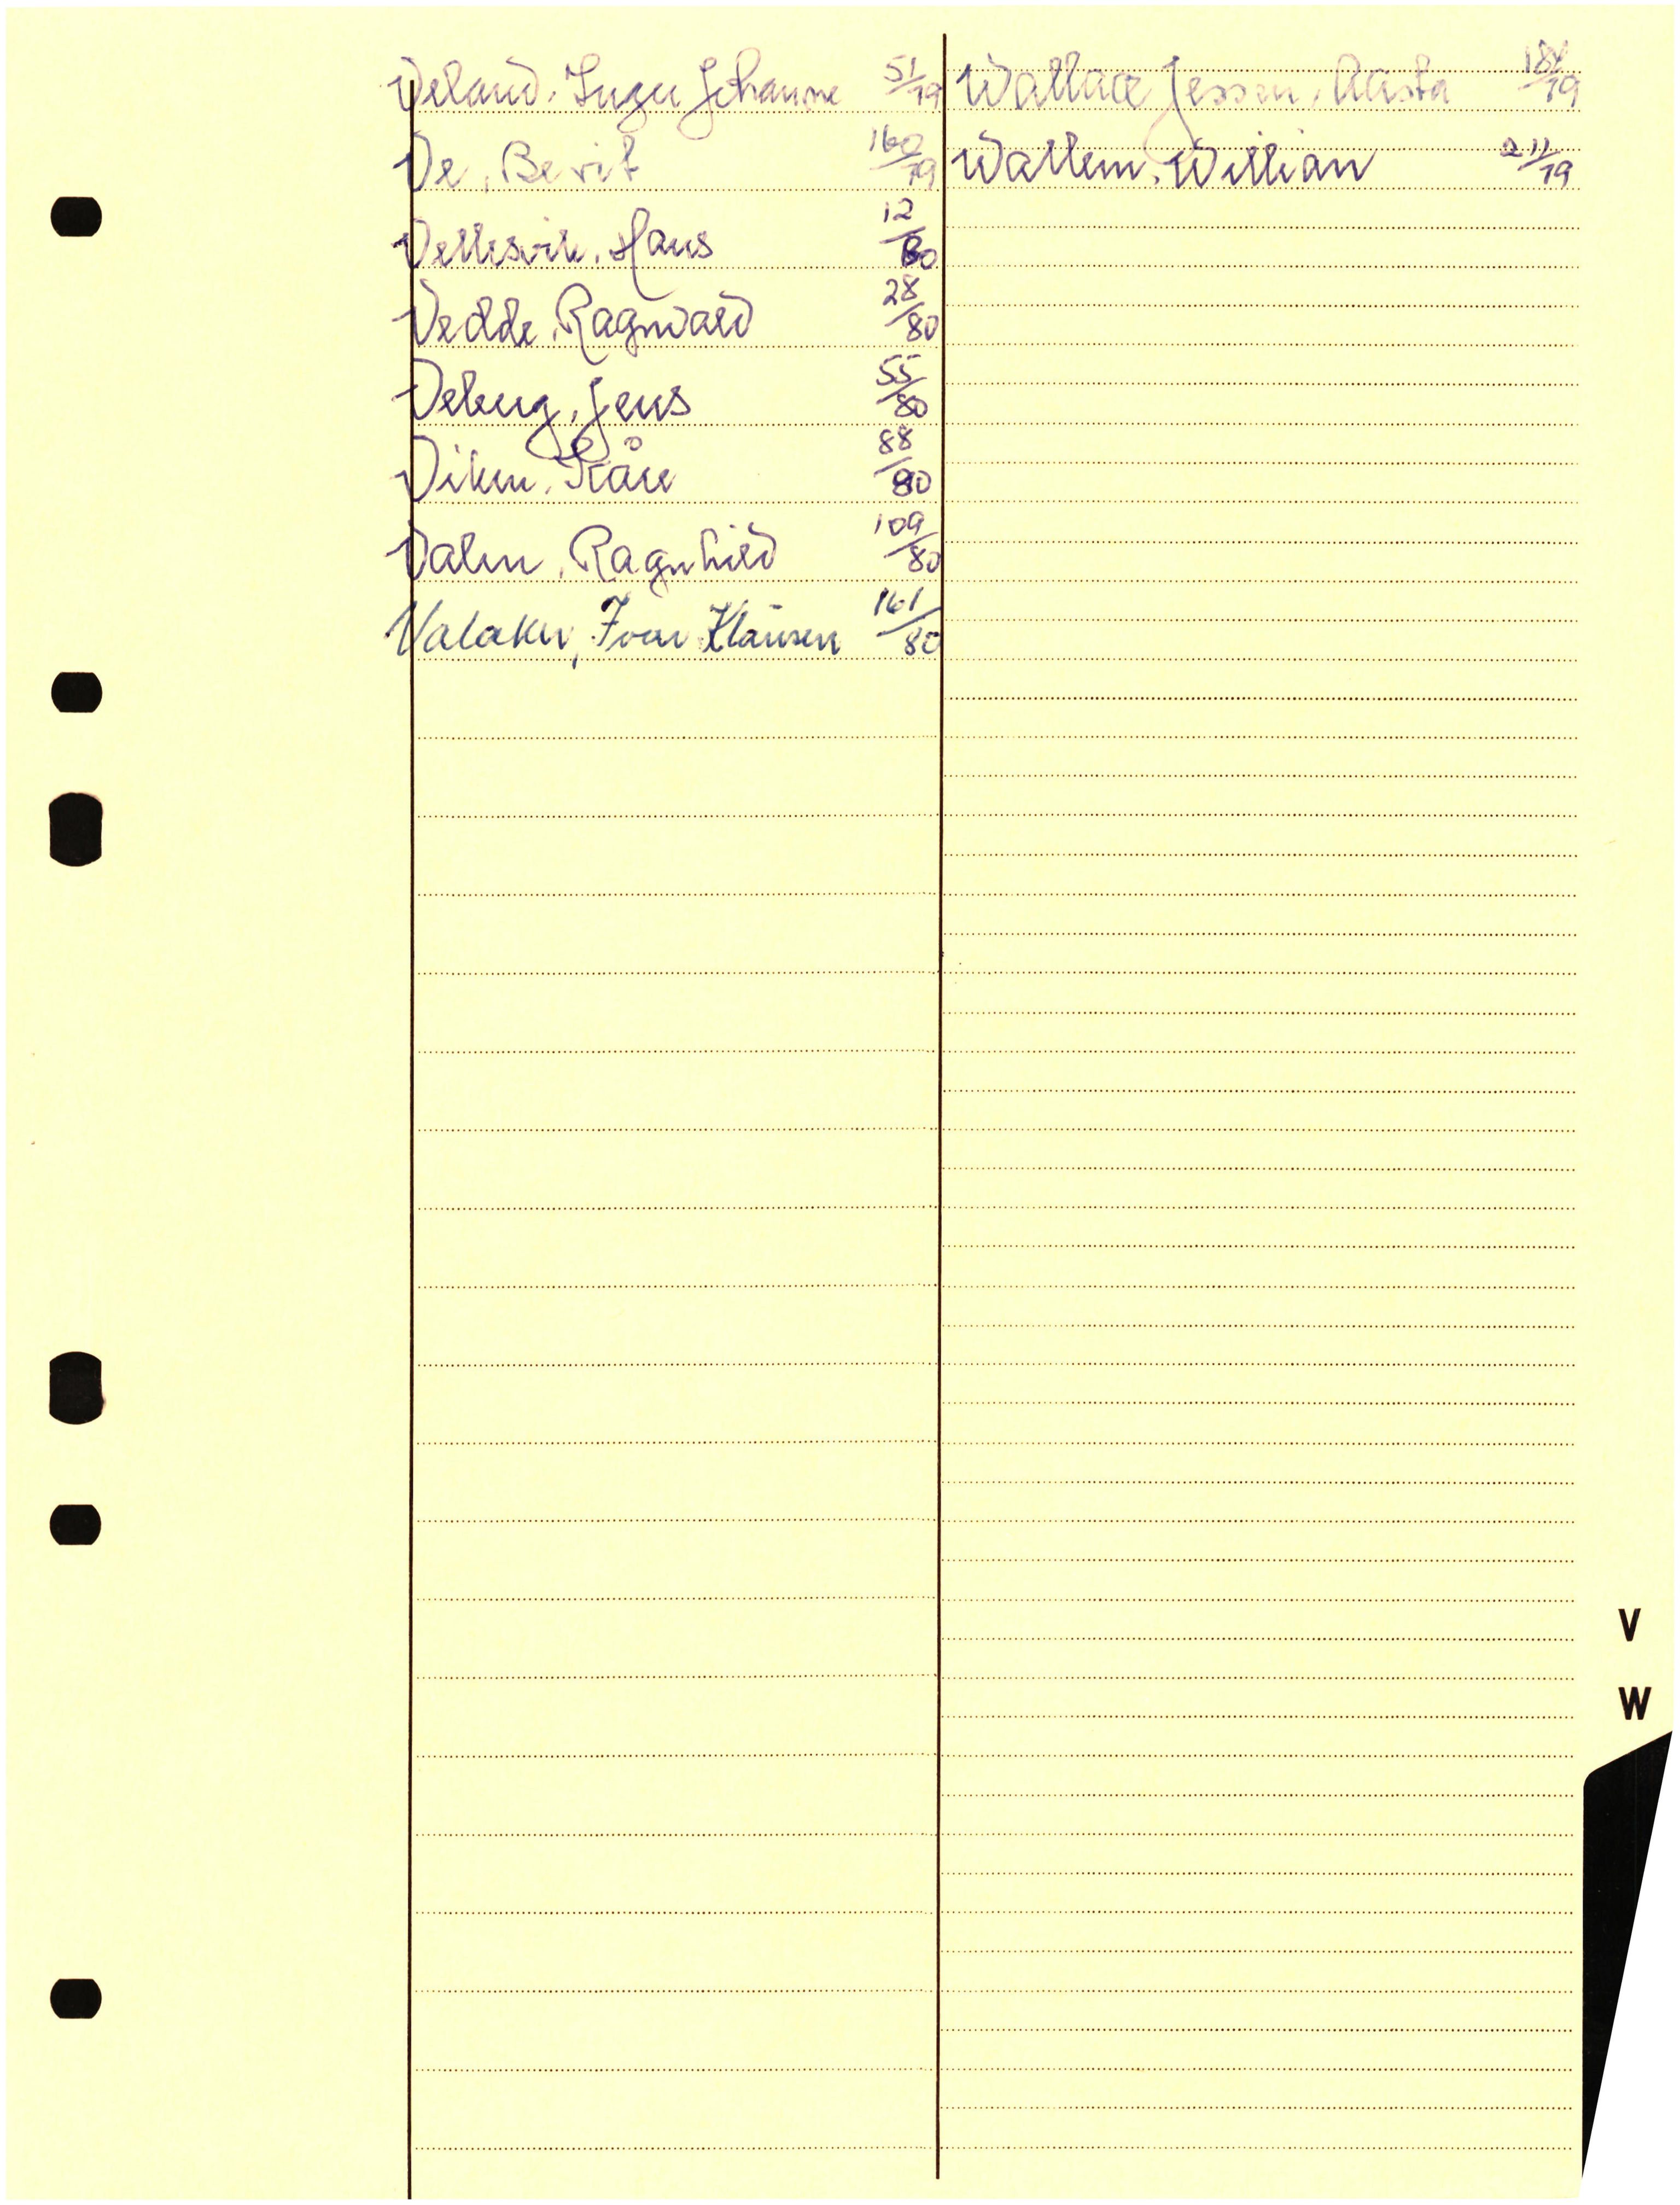 Veland, Inger Johanne 51/79
Ve, Berit 160/79
Vellesvik, Hans 12/80
Vedde, Ragnvald 28/80
Jens 55/80
Viken, Kåre 88/80
Valen, Ragnhild 109/80
Valaker, Ivar Klausen 161/80
Wallace Jessen, Aasta 184/79
Wallem, William 211/79
V
W